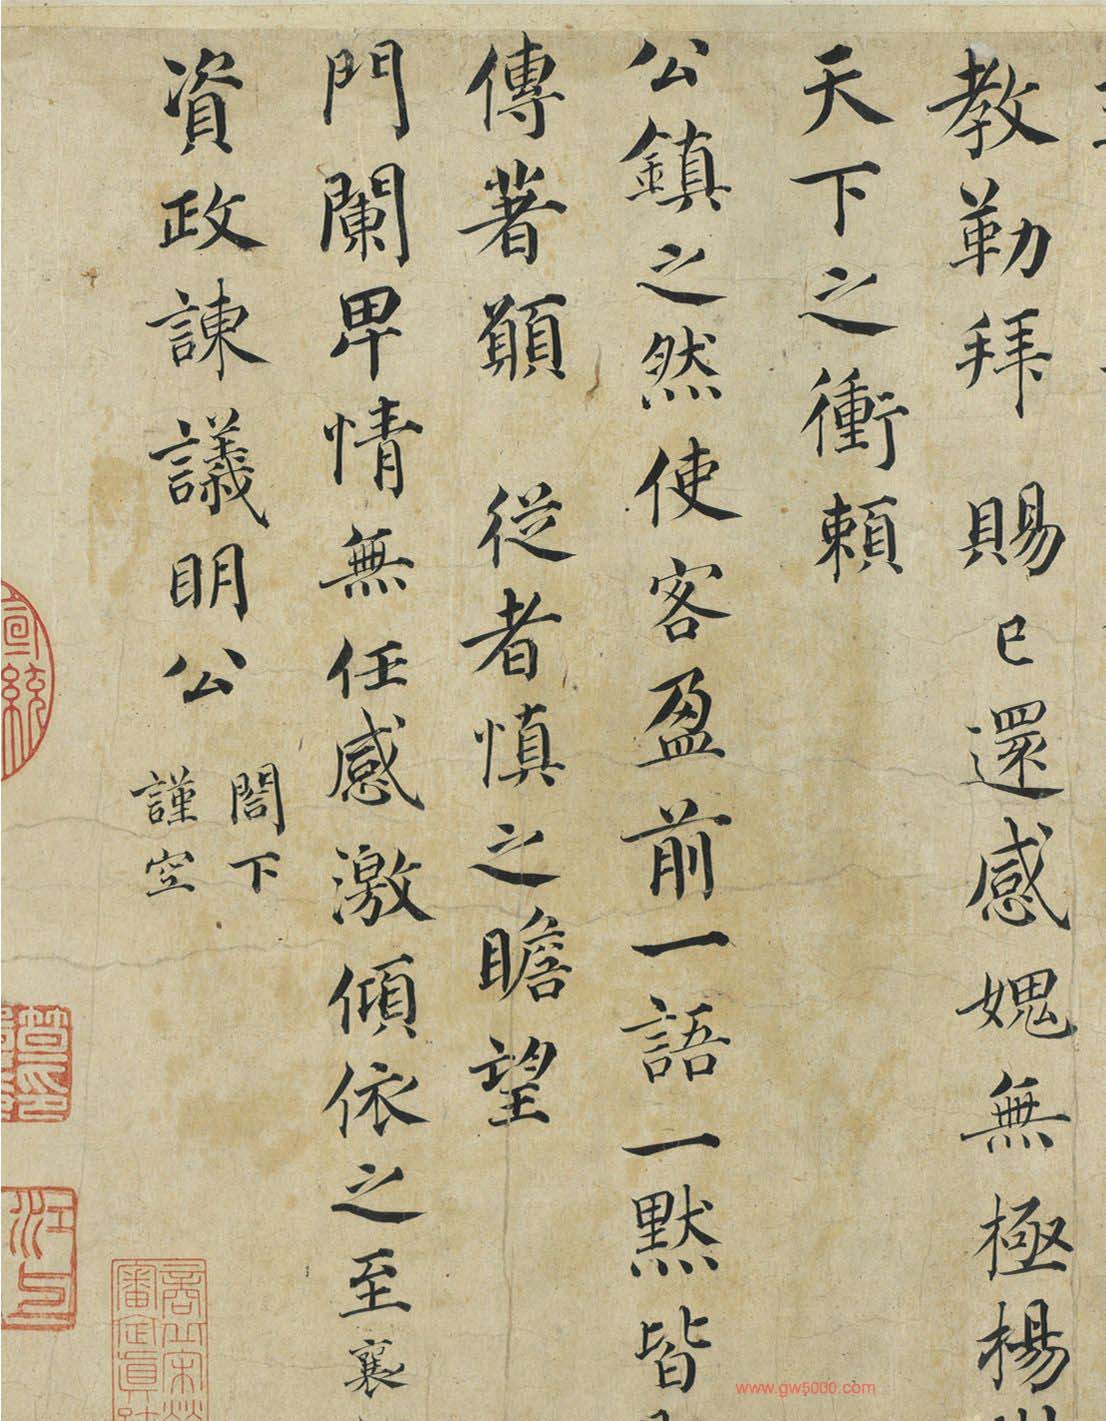 教勒拜 賜已還感媿無極楊
天下之衝賴
公鎮之然使客盈前一語一默皆
傳著願 從者慎之瞻望
門闌卑情無任感激傾依之至襄
資政諫議明公
閤下
謹空
商丘宋
審定真
www.gw5000.com